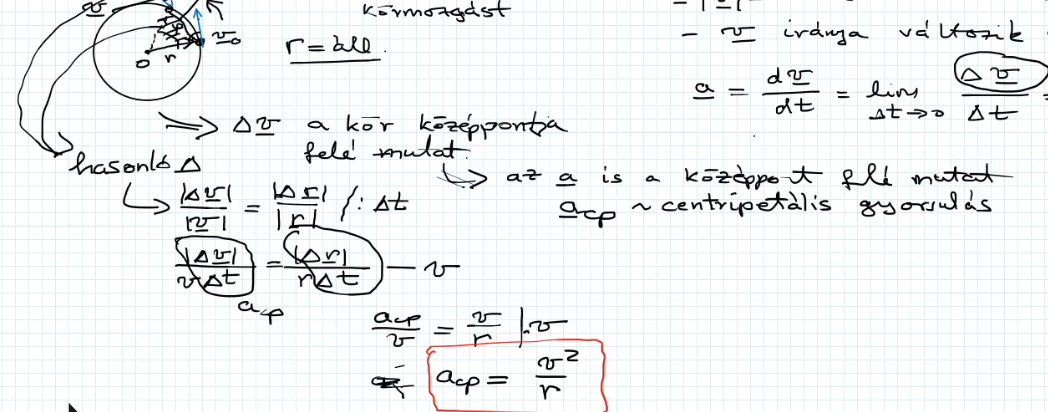 körmozgást
v
v₀
O
r
r = áll.
- |v|
- v iránya változik
a = dv/dt = lim Δt→0 Δv/Δt =
⟹ Δv a kör középpontja
felé mutat.
hasonló Δ
↳ az a is a középpont felé mutat
a_cp ~ centripetális gyorsulás
↳ |Δv|/|v| = |Δr|/|r| /: Δt
|Δv|/vΔt = |Δr|/rΔt — v
a_cp
a_cp/v = v/r |·v
a_cp = v²/r